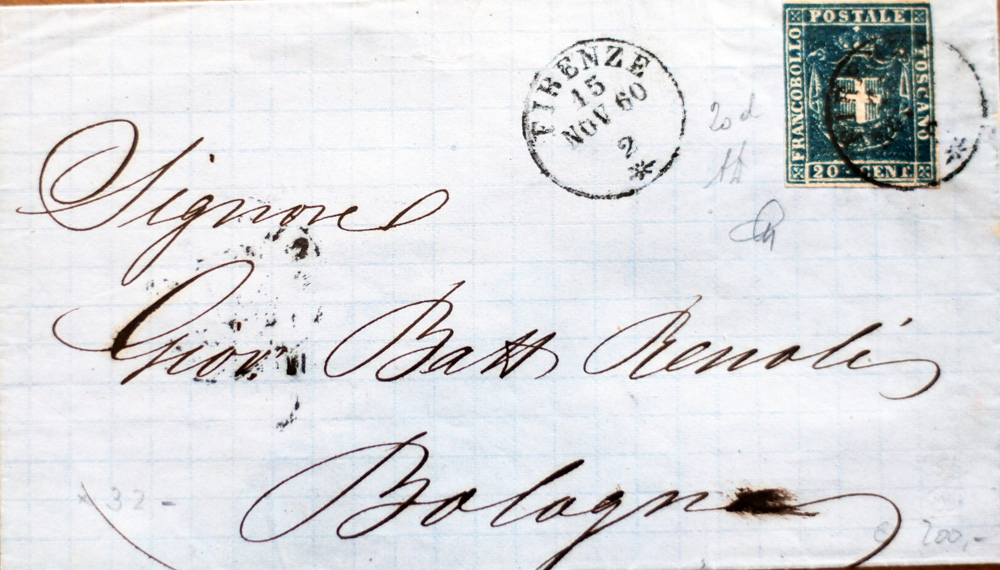 POSTALE
FRANCOBOLLO
TOSCANO
20 CENT
FIRENZE
15
NOV 60
2
*
20 d
Signore
Giov. Batt Renoli
Bologna
* 32 -
€ 200,-